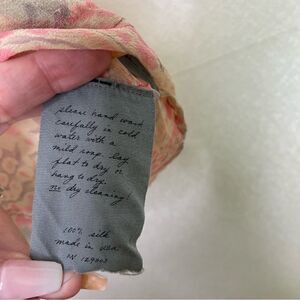 please hand wash
carefully in cold
water with a
mild soap. lay
flat to dry or
hang to dry.
no dry cleaning
100% silk
made in usa